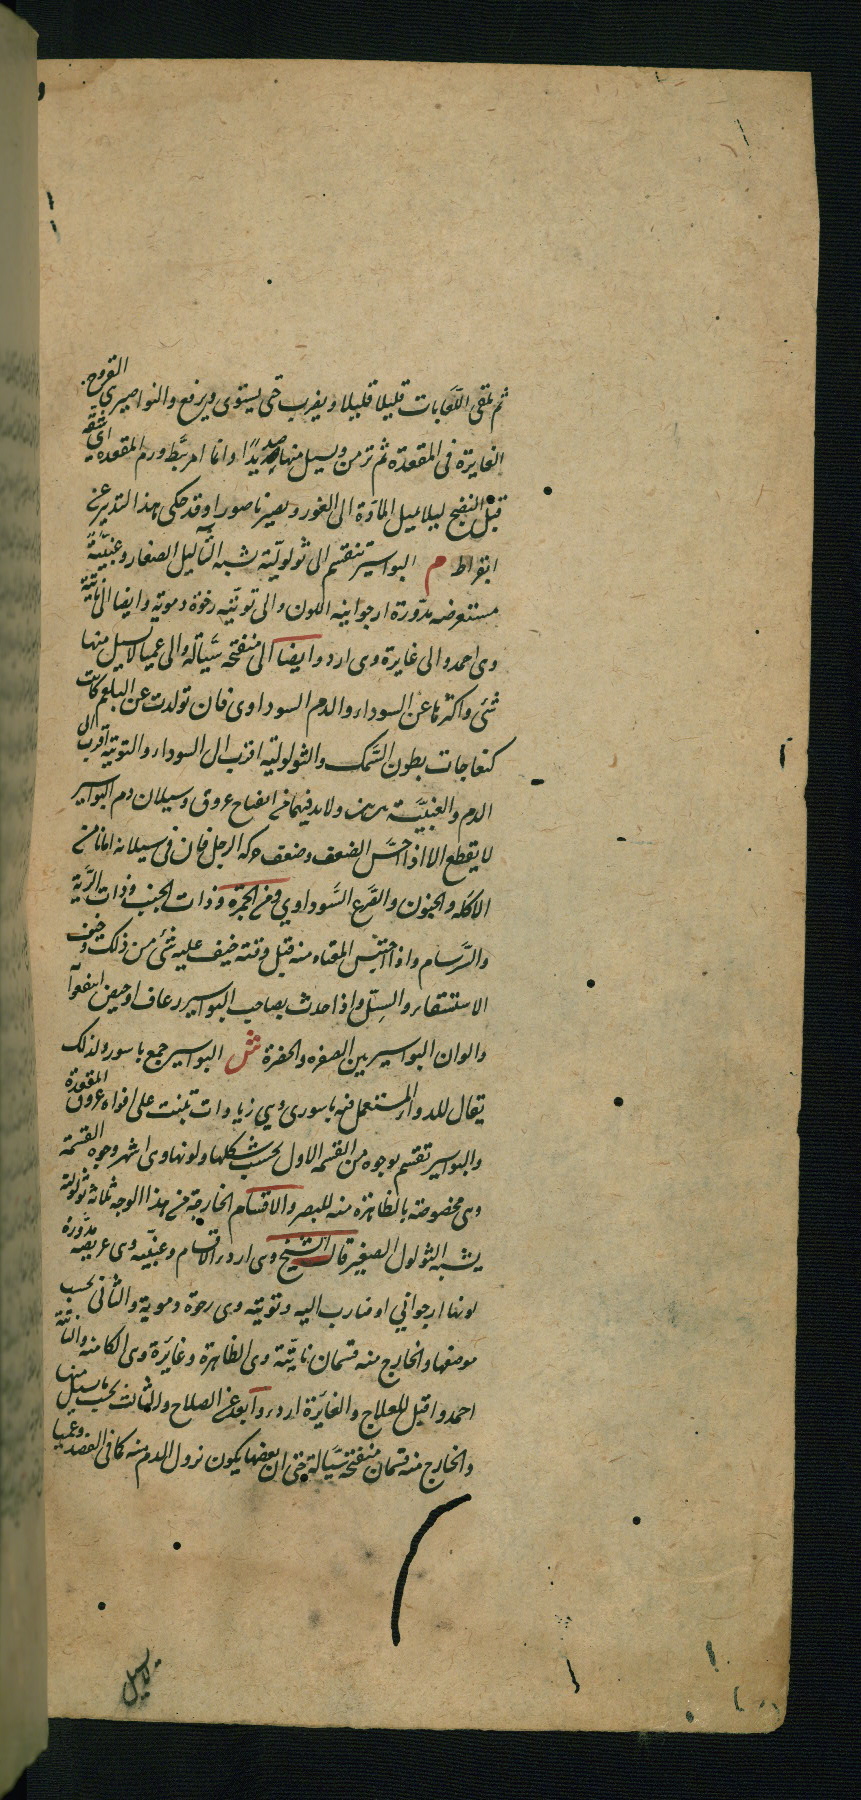 ثم تلقى اللعابات قليلا قليلا ويضرب حتى يستوى ويرفع والنواصير هي القروح
الغايرة فى المقعدة ثم تزمن ويسيل منها صديدًا وانما امر بَطّ ورم المقعدة اى شقه
قبل النضج ليلا تميل المادّة الى الغور ويصير ناصورا وقد حكى هذا التدبير عن
ابقراط م البواسير تنقسم الى ثولوليّة يشبه الثآليل الصغار وعنبيّة
مستعرضه مدّورة ارجوانيه اللون والى توثيّه رخوة دموية وايضا الى ناتية
وهى احمد والى غايرة وهى اردو وايضا الى منفتحه سيّالة والى عميا لا يسيل منها
شئ واكثرها عن السوداء والدم السوداوى فان تولدت عن البلغم كانت
كنفاجات بطون السّمك والثولوليّه اقرب الى السوداء والتوتيّه اقرب الى
الدم والعنبيّة بين بين ولا بد فيها من انفتاح عروق وسيلان دم البواسير
لا يقطع الا اذا احسّ الضعف وضعف حركه الرجل فان فى سيلانه امانا من
الاكله والجنون والصّرع السّوداوي ومن الحمرة وذات الجنب وذات الرّية
والسّرسام واذا احتبس المعتاد منه قبل وقته خيف عليه شئ من ذلك وخيف
الاستسقاء والسلّ واذا حدث بصاحب البواسير رعاف او حيض انتفعوا
والوان البواسير بين الصفره والخضرة ش البواسير جمع باسور ولذلك
يقال للدواء المستعمل فيه باسورى وهى زيادات تنبت على افواه عروق المقعدة
والبواسير تقسم بوجوه من القسمه الاول بحسب شكلها ولونها وهى اشهر وجوه القسمة
وهى مخصوصة بالظاهرة منه للبصر والاقسام الخارجة من هذا الوجه ثلاثة ثولولية
يشبه الثولول الصغير قال الشيخ وهى اردء الاقسام وعنبيّه وهى عريضه مدّورة
لونها ارجواني او ضارب اليه وتوتيه وهى رخوة دموية والثانى بحسب
موضعها والخارج منه قسمان ناتيّة وهى الظاهرة وغايرة وهى الكامنه والناتية
احمد واقبل للعلاج والغايرة اردء وابعد عن الصلاح والثالث بحسب ما يسيل منها
والخارج منه قسمان منفتحة سيّالة حتى ان بعضها يكون نزول الدم منه كما فى الفصد وعميا
لا يسيل